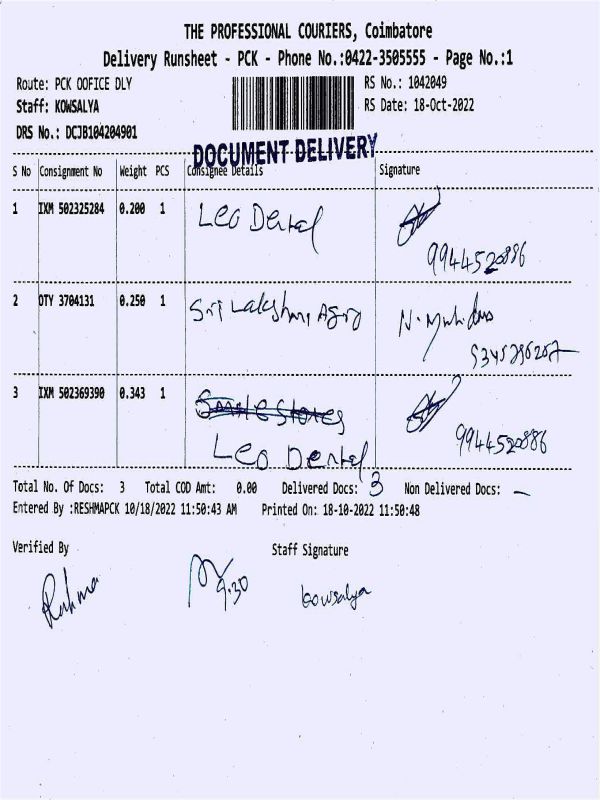 THE PROFESSIONAL COURIERS, Coimbatore
Delivery Runsheet - PCK - Phone No.:0422-3505555 - Page No.:1
Route: PCK OOFICE DLY RS No.: 1042049
Staff: KOWSALYA RS Date: 18-Oct-2022
DRS No.: DCJB104204901
DOCUMENT DELIVERY
S No Consignment No Weight PCS Consignee Details Signature
1 IXM 502325284 0.200 1 Leo Dental
9944520886
2 OTY 3704131 0.250 1 Sri Lakshmi Agro
3 IXM 502369390 0.343 1
Leo Dental 9944520886
Total No. Of Docs: 3 Total COD Amt: 0.00 Delivered Docs: 3 Non Delivered Docs: –
Entered By :RESHMAPCK 10/18/2022 11:50:43 AM Printed On: 18-10-2022 11:50:48
Verified By Staff Signature
9.30 kowsalya